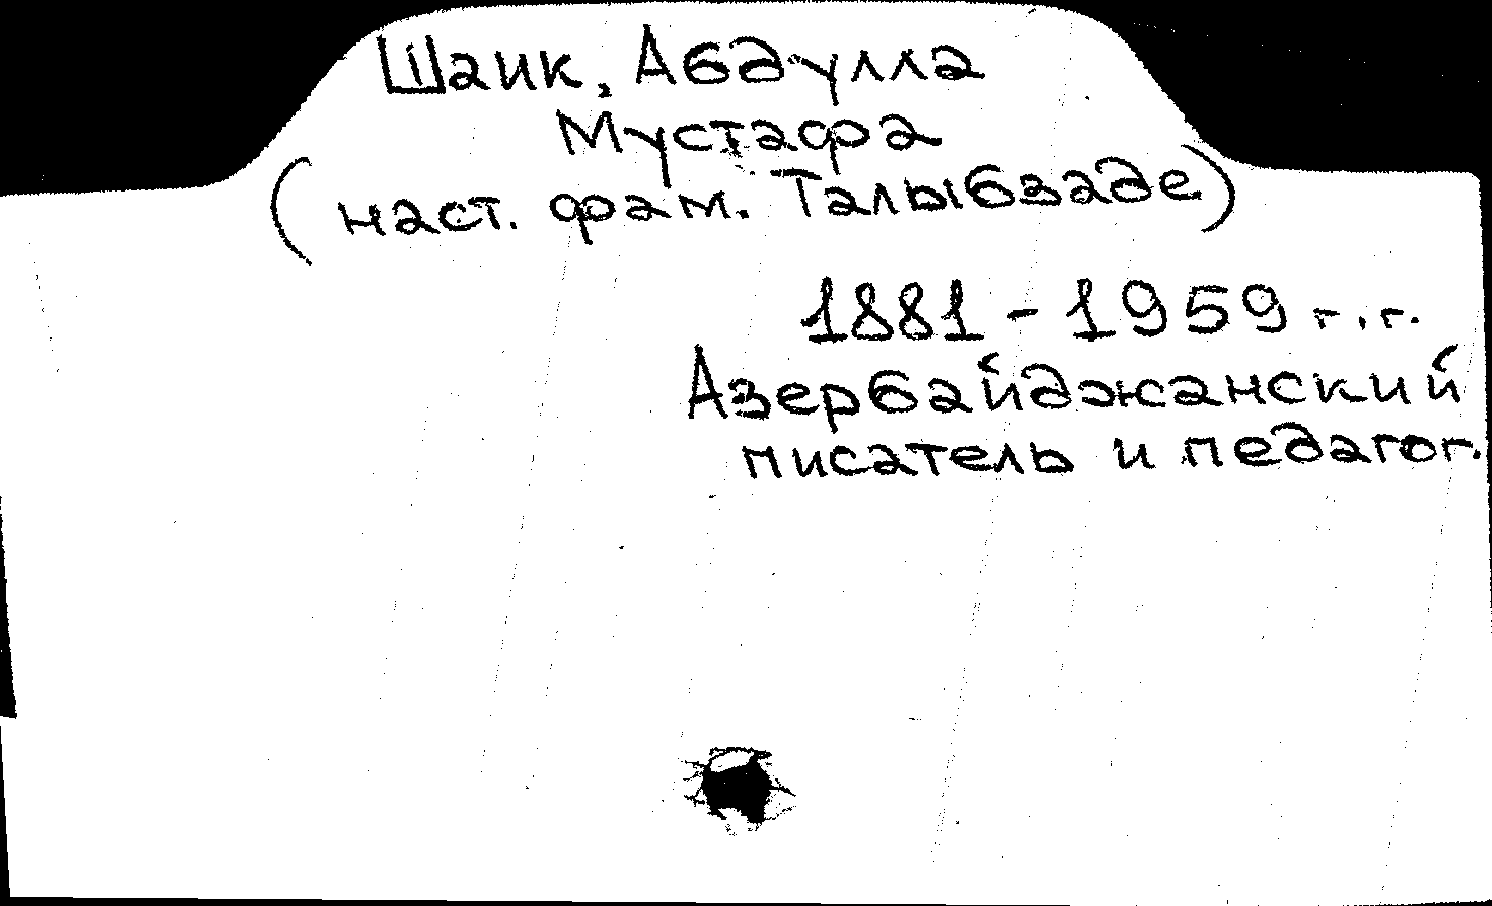 Шаик, Абдулла
Мустафа
(наст. фам. Талыбзаде)
1881 - 1959 г.г.
Азербайджанский
писатель и педагог.